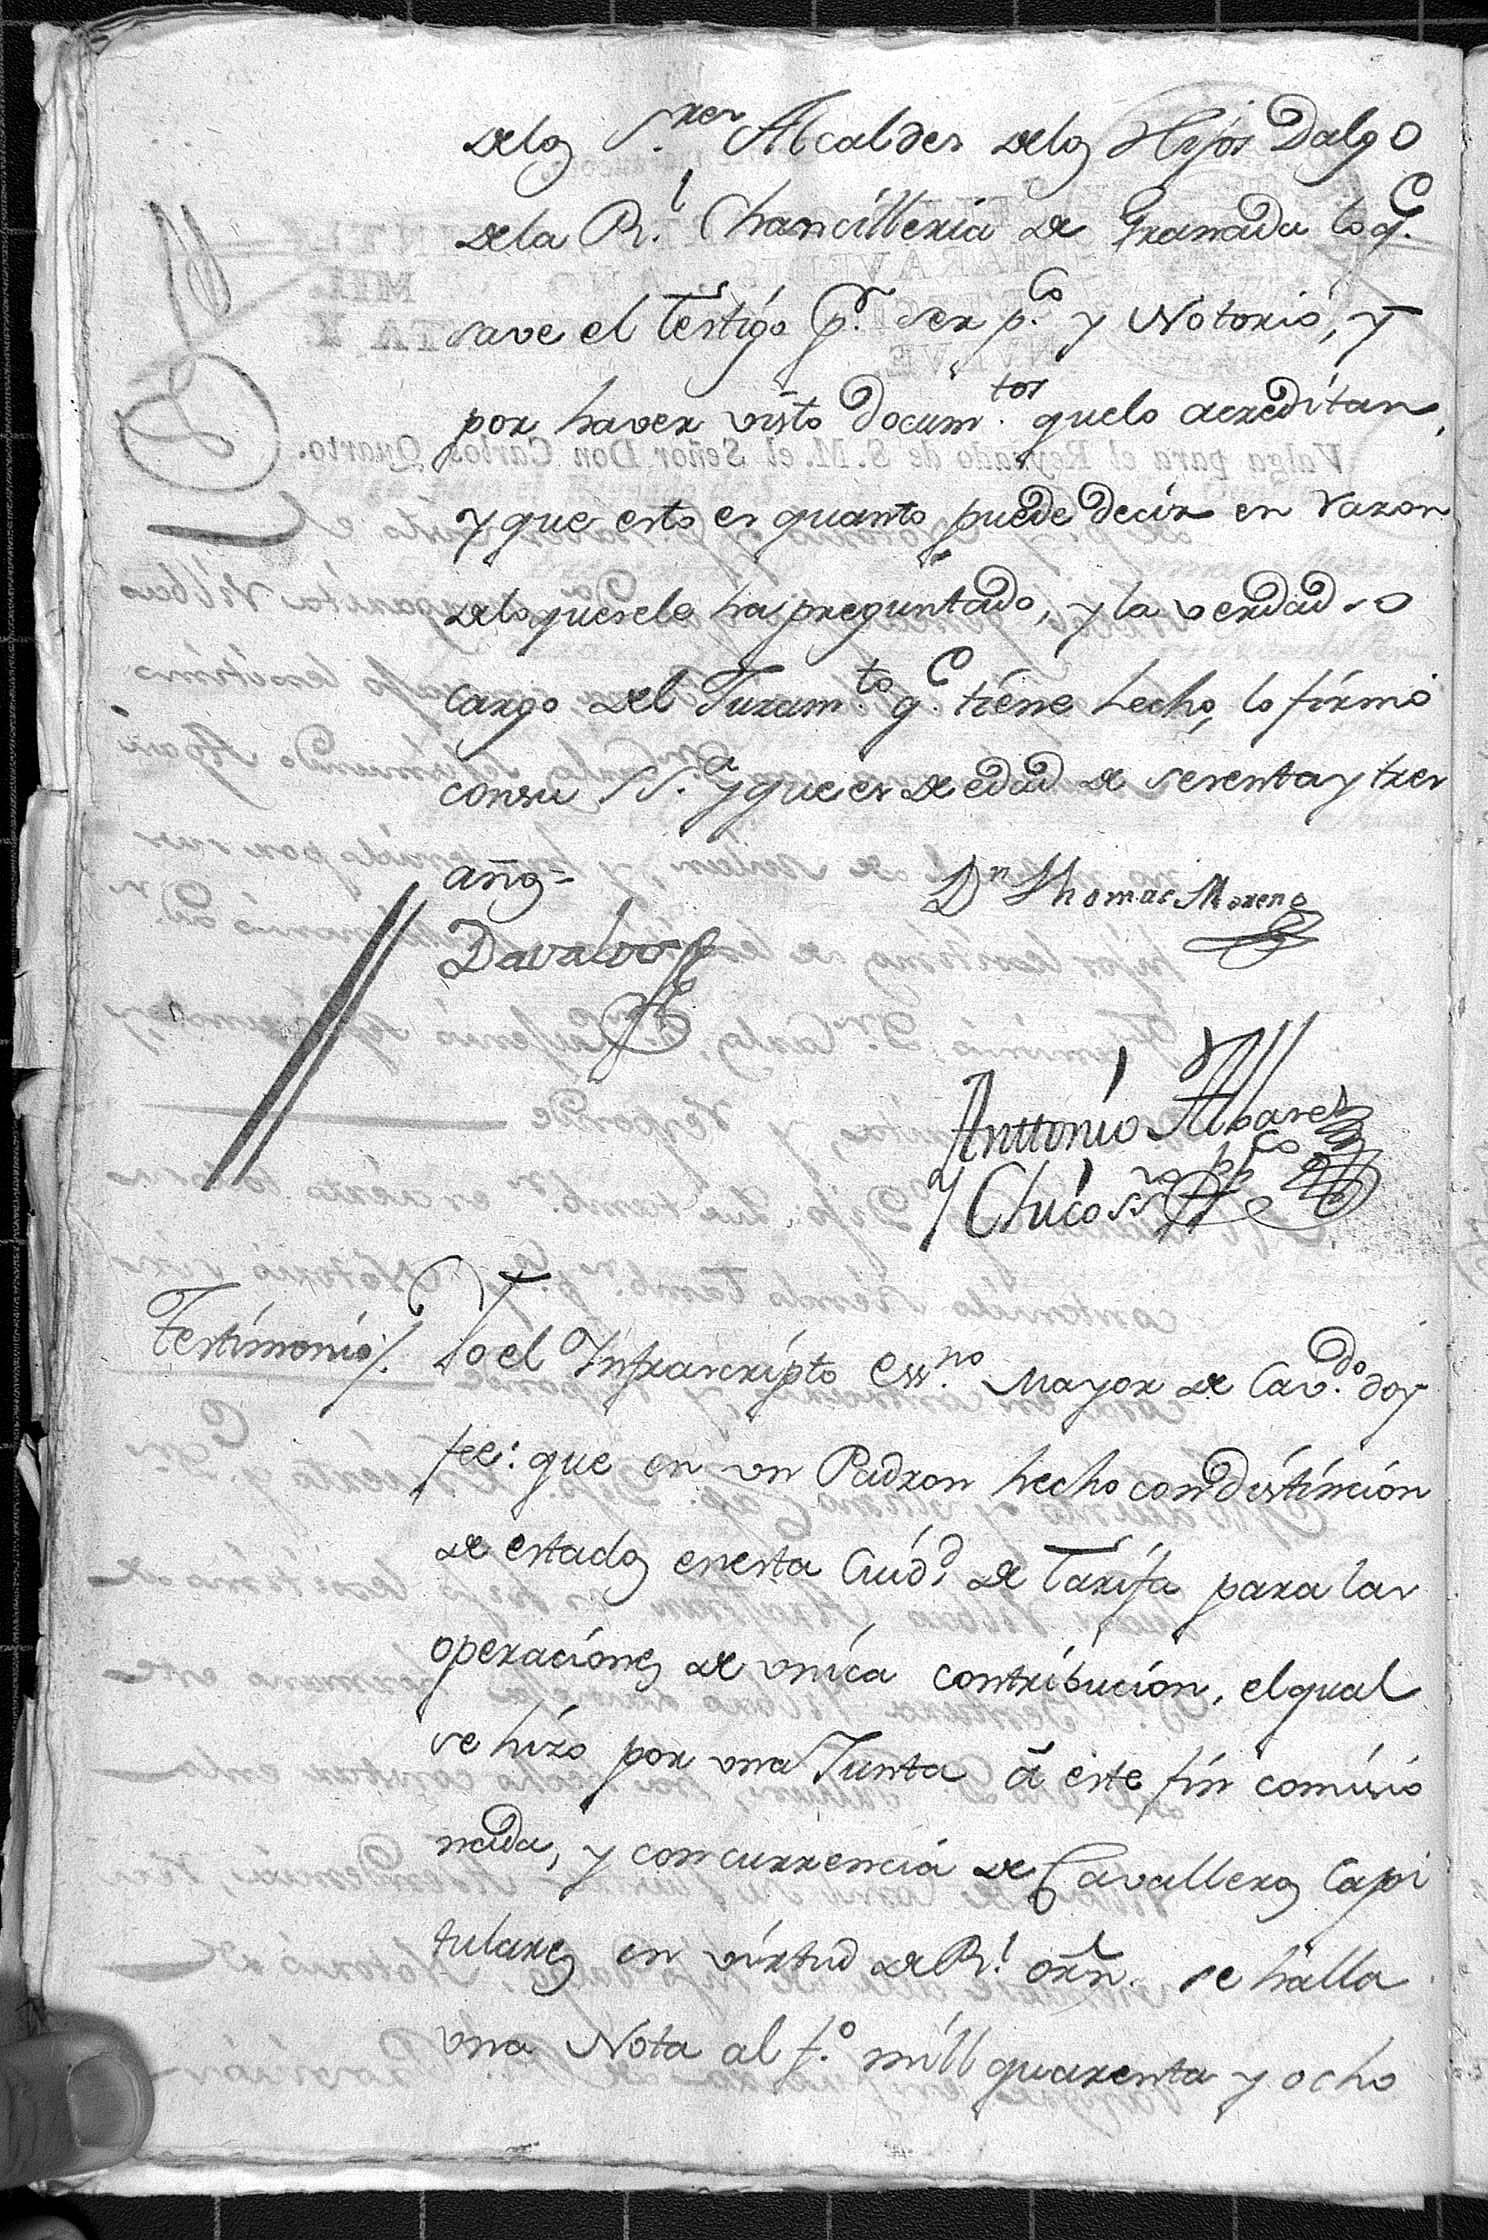 delos S.res Alcaldes delos Hijos Dalgo
dela R.l Chancilleria de Granada lo q.e
save el testigo p.r ser p.co y Notorio, y
por haver visto docum.tos quelo acreditan,
y que esto es quanto puede decir en razon
delo quesele ha preguntado, y la verdad so
cargo del Juram.to q.e tiene hecho, lo firmó
consu SS.a y que es de edad de setenta y tres
años=
Dn Thomas Moreno
Davalos
Anttonio Albarez
y Chico ss.no pp.co
Testimonio/. Yo el Infrascripto Ess.no Mayor de Cav.do doy
fee: que en un Padron hecho con distincion
de estados enesta Ciud.d de Tarifa para las
operaciones de unica contribucion, el qual
se hizo por una Junta á este fin comisio
nada, y concurrencia de Cavalleros Capi
tulares en virtud de R.l orñ. se halla
una Nota al f.o mill quarenta y ocho